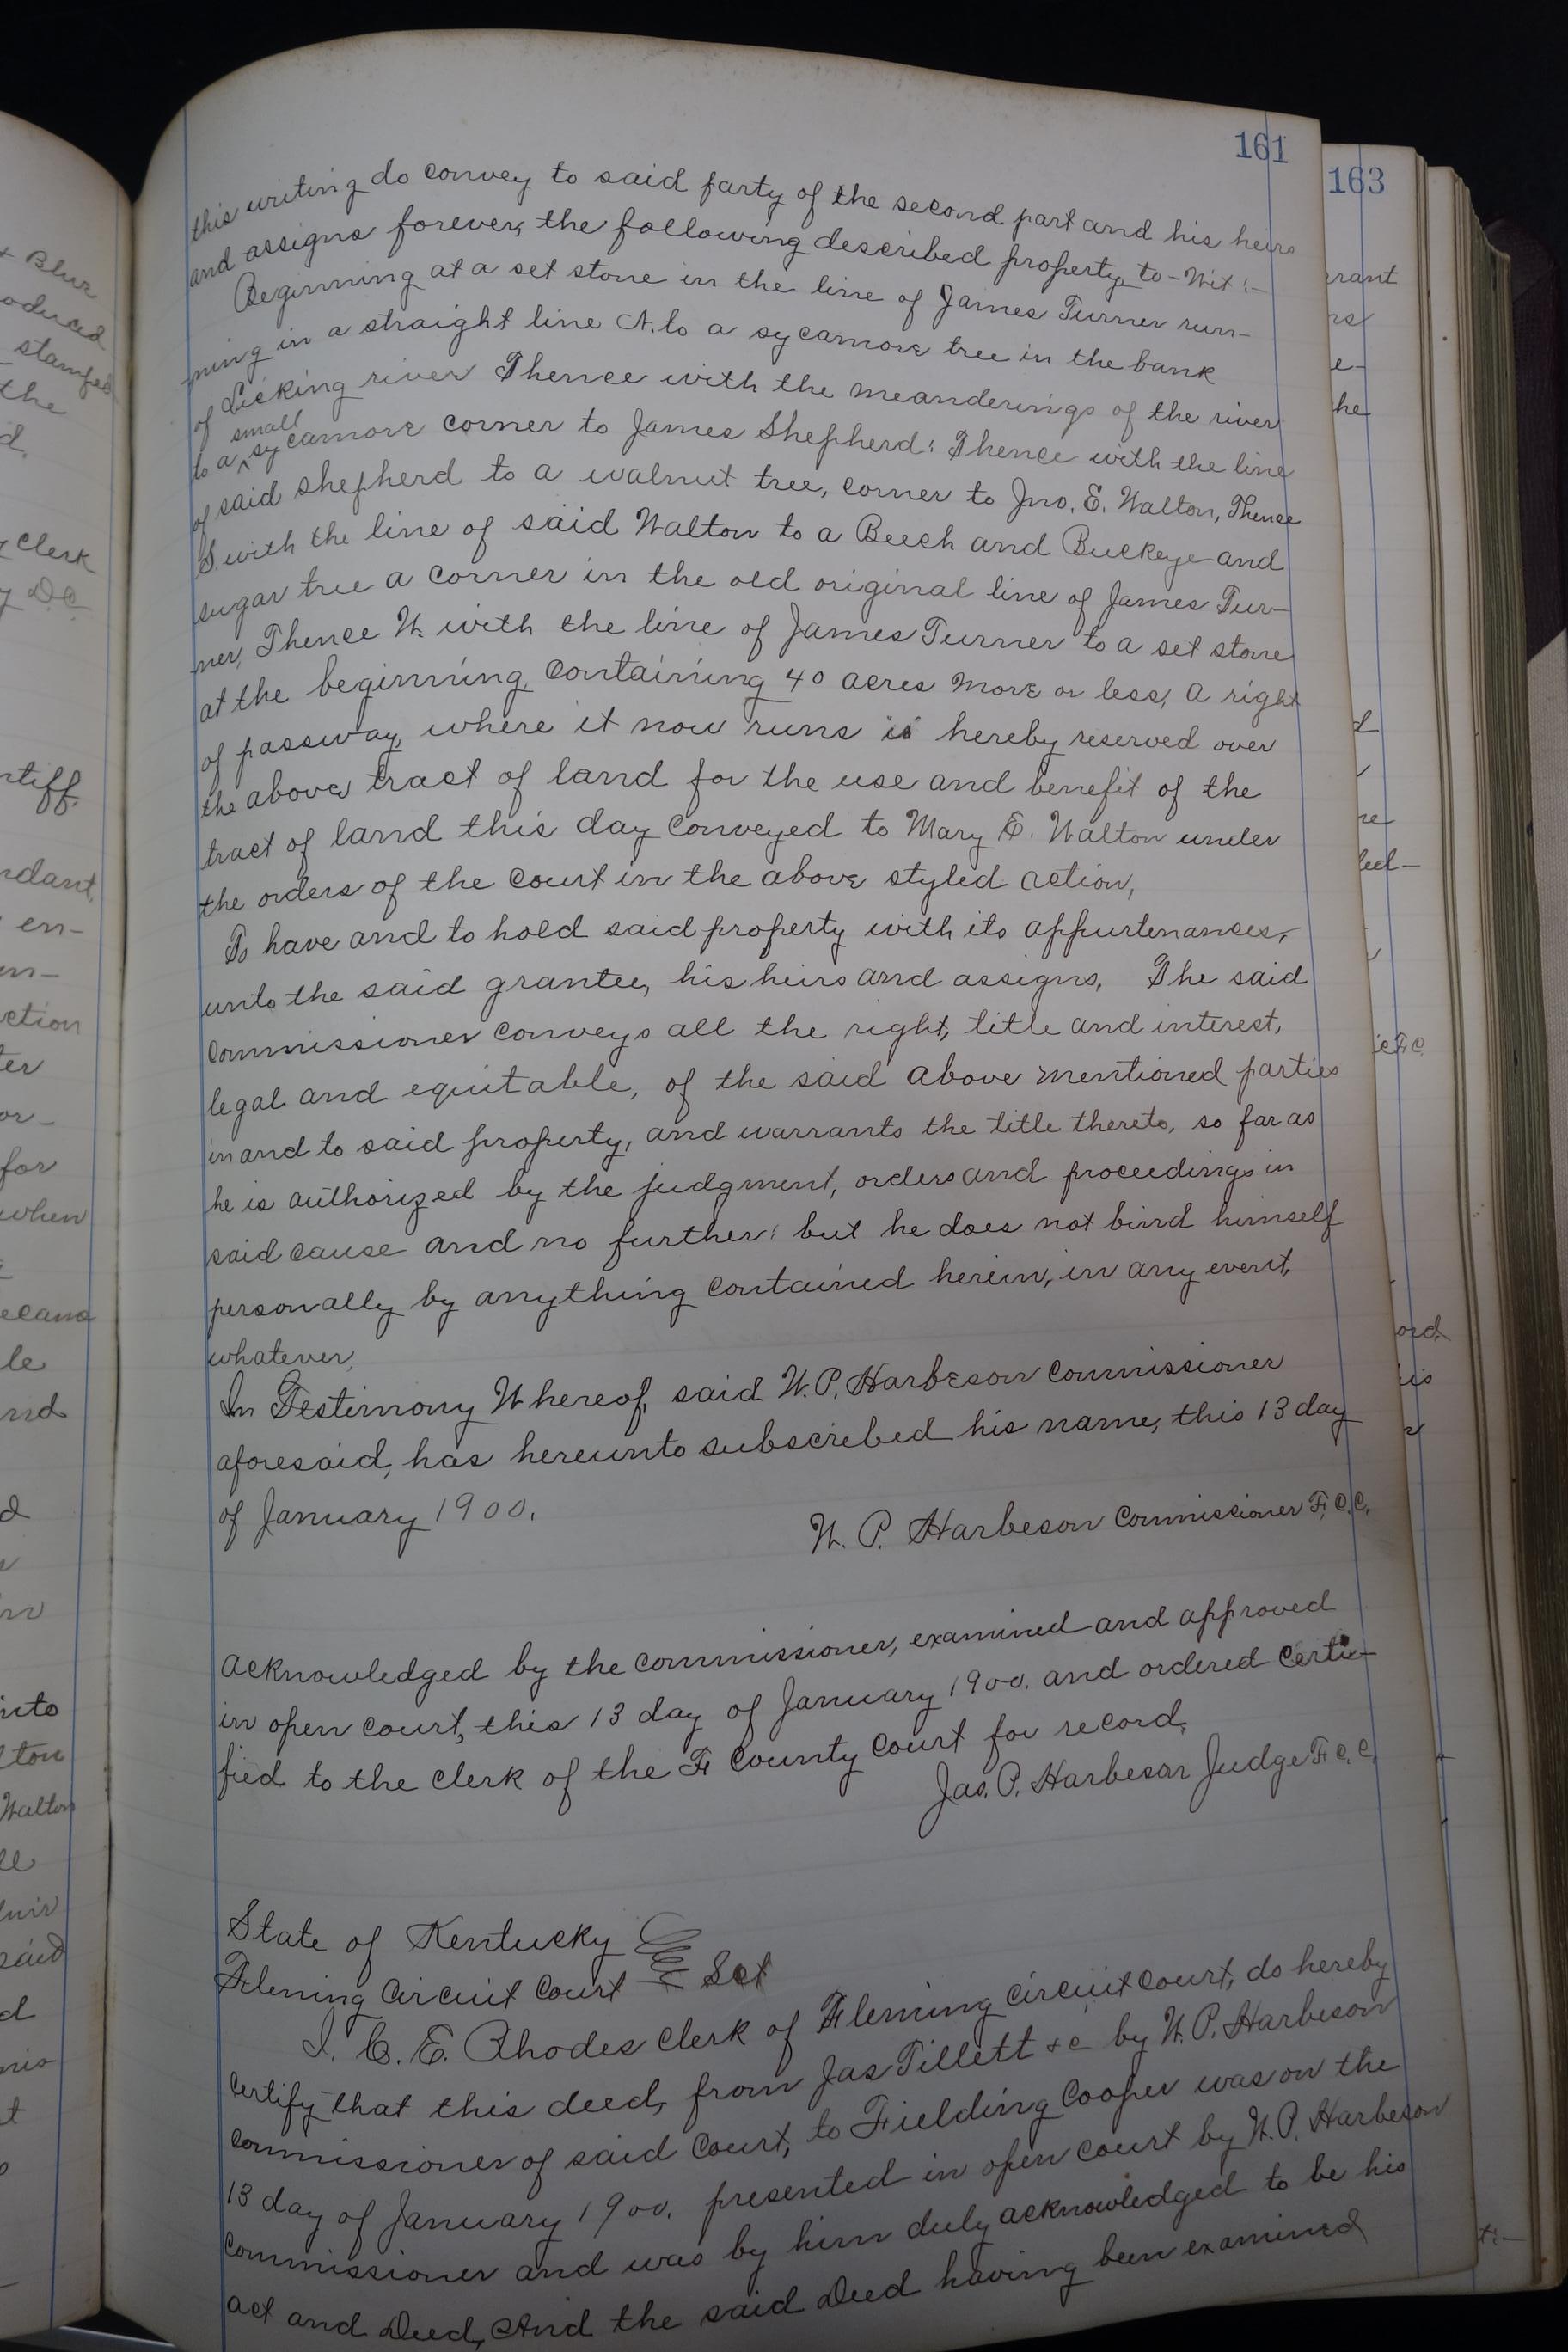 161
this writing do convey to said party of the second part and his heirs
and assigns forever, the following described property, to-wit:-
Beginning at a set stone in the line of James Turner run-
ning in a straight line N. to a sycamore tree in the bank
of Licking river Thence with the meanderings of the river
to a small sycamore corner to James Shepherd: Thence with the line
of said shepherd to a walnut tree, corner to Jno. E. Walton, Thence
S. with the line of said Walton to a Beech and Buckeye and
sugar tree a corner in the old original line of James Tur-
ner, Thence W. with the line of James Turner to a set stone
at the beginning, containing 40 acres more or less, A right
of passway, where it now runs is hereby reserved over
the above tract of land for the use and benefit of the
tract of land this day conveyed to Mary E. Walton under
the orders of the court in the above styled action,
To have and to hold said property with its appurtenances,
unto the said grantee, his heirs and assigns, The said
commissioner conveys all the right, title and interest,
legal and equitable, of the said above mentioned parties
in and to said property, and warrants the title thereto, so far as
he is authorized by the judgment, orders and proceedings in
said cause and no further: but he does not bind himself
personally by anything contained herein, in any event,
whatever,
In Testimony Whereof, said W. P. Harbeson commissioner
aforesaid, has hereunto subscribed his name, this 13 day
of January 1900.
W. P. Harbeson Commissioner F. C. C.
Acknowledged by the commissioner, examined and approved
in open court, this 13 day of January 1900. and ordered certi-
fied to the clerk of the F County Court for record,
Jas. P. Harbeson Judge F. C. C.
State of Kentucky
Fleming Circuit Court Sct
I. C. E. Rhodes clerk of Fleming circuit court, do hereby
certify that this deed, from Jas Tillett &c by W. P. Harbeson
commissioner of said court, to Fielding Cooper was on the
13 day of January 1900. presented in open court by W. P. Harbeson
commissioner and was by him duly acknowledged to be his
act and Deed, And the said Deed having been examined
163